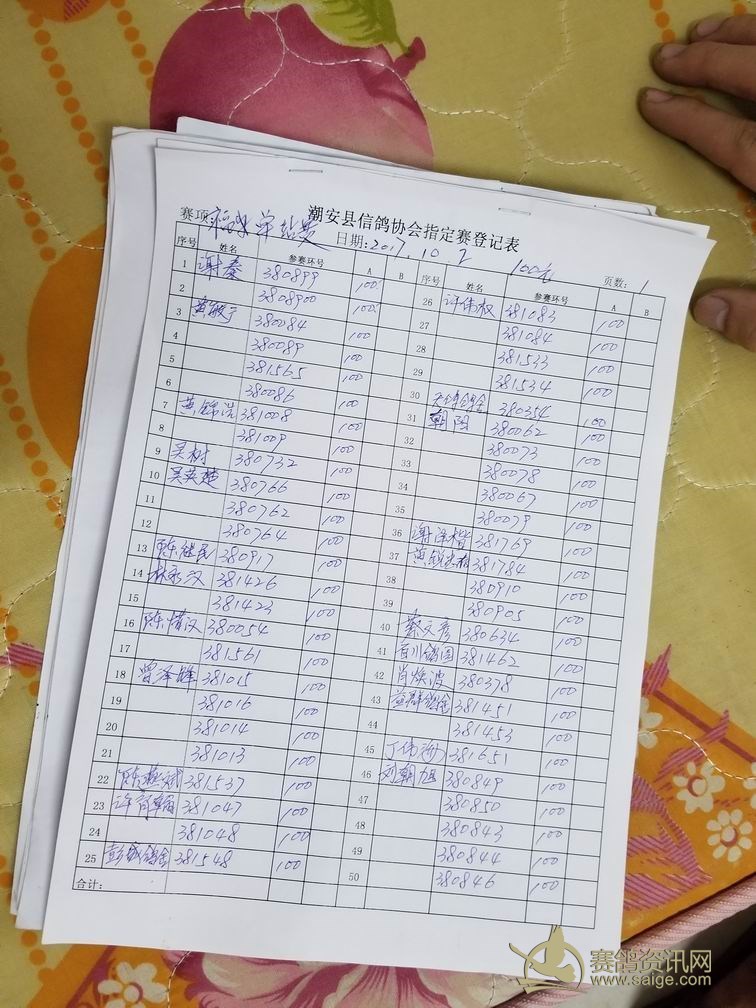 潮安县信鸽协会指定赛登记表
赛项: 单站赛 日期: 2017.10.2 100元 页数: 1
序号 姓名 参赛环号 A B 序号 姓名 参赛环号 A B
1 谢秦 380899 100 26 许伟权 381083 100
2 3808900 100 27 381084 100
3 黄敏宁 380084 100 28 381533 100
4 380089 100 29 381534 100
5 381565 100 30 380354 100
6 380086 100 31 朝阳 380062 100
7 黄锦浩 381008 100 32 380073 100
8 381009 100 33 380078 100
9 吴树 380732 100 34 380067 100
10 吴英楚 380766 100 35 380079 100
11 380762 100 36 谢泽楷 381769 100
12 380764 100 37 381784 100
13 陈继民 380917 100 38 380910 100
14 林永汉 381426 100 39 380905 100
15 381423 100 40 蔡文彦 380634 100
16 陈惜汉 380054 100 41 百川鸽园 381462 100
17 381561 100 42 肖焕波 380378 100
18 曾泽锋 381015 100 43 益群鸽舍 381451 100
19 381016 100 44 381453 100
20 381014 100 45 丁伟 381651 100
21 381013 100 46 刘朝旭 380849 100
22 陈燕斌 381537 100 47 380850 100
23 381047 100 48 380843 100
24 381048 100 49 380844 100
25 彭城鸽舍 381548 100 50 380846 100
合计:
赛鸽资讯网
www.saige.com